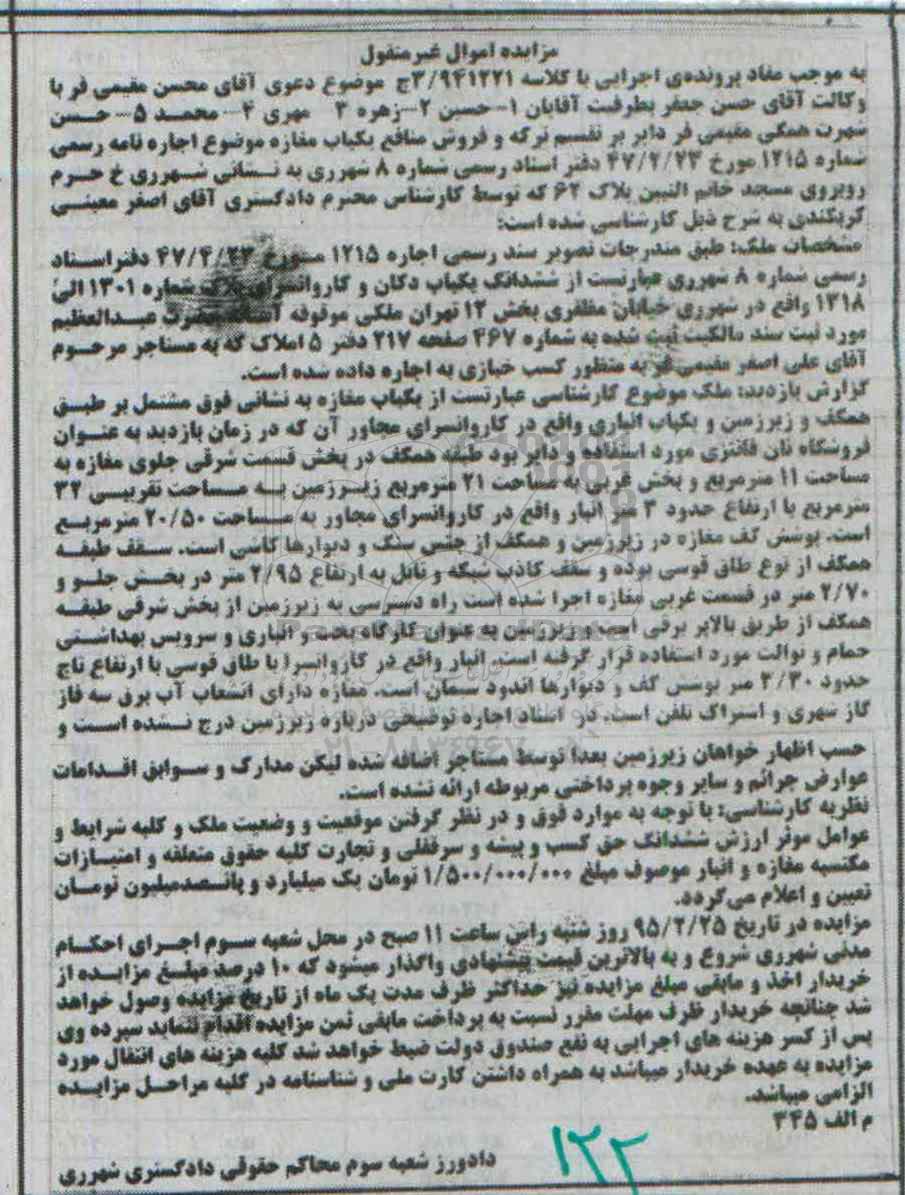 مزایده اموال غیر منقول
به موجب مفاد پرونده‌ی اجرایی با کلاسه ۳/۹۴۱۲۲۱ج موضوع دعوی آقای محسن مقیمی فر با
وکالت آقای حسن جعفر بطرفیت آقایان ۱- حسین ۲- زهره ۳ مهری ۴- محمد ۵- حسن
شهرت همگی مقیمی فر دایر بر تقسیم ترکه و فروش منافع یکباب مغازه موضوع اجاره نامه رسمی
شماره ۱۲۱۵ مورخ ۴۷/۴/۲۳ دفتر اسناد رسمی شماره ۸ شهرری به نشانی شهرری خ حرم
روبروی مسجد خاتم النبین پلاک ۶۲ که توسط کارشناس محترم دادگستری آقای اصغر معینی
گریکندی به شرح ذیل کارشناسی شده است:
مشخصات ملک: طبق مندرجات تصویر سند رسمی اجاره ۱۲۱۵ مورخ ۴۷/۴/۲۳ دفتر اسناد
رسمی شماره ۸ شهرری عبارتست از ششدانگ یکباب دکان و کاروانسرای پلاک شماره ۱۳۰۱ الی
۱۳۱۸ واقع در شهرری خیابان مظفری بخش ۱۲ تهران ملکی موقوفه آستان حضرت عبدالعظیم
مورد ثبت سند مالکیت ثبت شده به شماره ۴۶۷ صفحه ۲۱۷ دفتر ۵ املاک که به مستاجر مرحوم
آقای علی اصغر مقیمی فر به منظور کسب خبازی به اجاره داده شده است.
گزارش بازدید: ملک موضوع کارشناسی عبارتست از یکباب مغازه به نشانی فوق مشتمل بر طبق
همکف و زیرزمین و یکباب انباری واقع در کاروانسرای مجاور آن که در زمان بازدید به عنوان
فروشگاه نان فانتزی مورد استفاده و دایر بود طبقه همکف در بخش قسمت شرقی جلوی مغازه به
مساحت ۱۱ مترمربع و بخش غربی به مساحت ۲۱ مترمربع زیرزمین به مساحت تقریبی ۳۲
مترمربع با ارتفاع حدود ۳ متر انبار واقع در کاروانسرای مجاور به مساحت ۲۰/۵۰ مترمربع
است. پوشش کف مغازه در زیرزمین و همکف از جنس سنگ و دیوارها کاشی است. سقف طبقه
همکف از نوع طاق قوسی بوده و سقف کاذب شبکه و تایل به ارتفاع ۲/۹۵ متر در بخش جلو و
۲/۷۰ متر در قسمت غربی مغازه اجرا شده است راه دسترسی به زیرزمین از بخش شرقی طبقه
همکف از طریق بالابر برقی است و زیرزمین به عنوان کارگاه پخت و انباری و سرویس بهداشتی
حمام و توالت مورد استفاده قرار گرفته است. انبار واقع در کاروانسرا با طاق قوسی با ارتفاع تاج
حدود ۳/۳۰ متر پوشش کف و دیوارها اندود سیمان است. مغازه دارای انشعاب آب برق سه فاز
گاز شهری و اشتراک تلفن است. در اسناد اجاره توضیحی درباره زیرزمین درج نشده است و
حسب اظهار خواهان زیرزمین بعدا توسط مستاجر اضافه شده لیکن مدارک و سوابق اقدامات
عوارض جرائم و سایر وجوه پرداختی مربوطه ارائه نشده است.
نظریه کارشناسی: با توجه به موارد فوق و در نظر گرفتن موقعیت و وضعیت ملک و کلیه شرایط و
عوامل موثر ارزش ششدانگ حق کسب و پیشه و سرقفلی و تجارت کلیه حقوق متعلقه و امتیازات
مکتسبه مغازه و انبار موصوف مبلغ ۱/۵۰۰/۰۰۰/۰۰۰ تومان یک میلیارد و پانصدمیلیون تومان
تعیین و اعلام می‌گردد.
مزایده در تاریخ ۹۵/۲/۲۵ روز شنبه راس ساعت ۱۱ صبح در محل شعبه سوم اجرای احکام
مدنی شهرری شروع و به بالاترین قیمت پیشنهادی واگذار میشود که ۱۰ درصد مبلغ مزایده از
خریدار اخذ و مابقی مبلغ مزایده نیز حداکثر ظرف مدت یک ماه از تاریخ مزایده وصول خواهد
شد چنانچه خریدار ظرف مهلت مقرر نسبت به پرداخت مابقی ثمن مزایده اقدام ننماید سپرده وی
پس از کسر هزینه های اجرایی به نفع صندوق دولت ضبط خواهد شد کلیه هزینه های انتقال مورد
مزایده به عهده خریدار میباشد به همراه داشتن کارت ملی و شناسنامه در کلیه مراحل مزایده
الزامی میباشد.
م الف ۳۴۵
دادورز شعبه سوم محاکم حقوقی دادگستری شهرری
۱۲۲